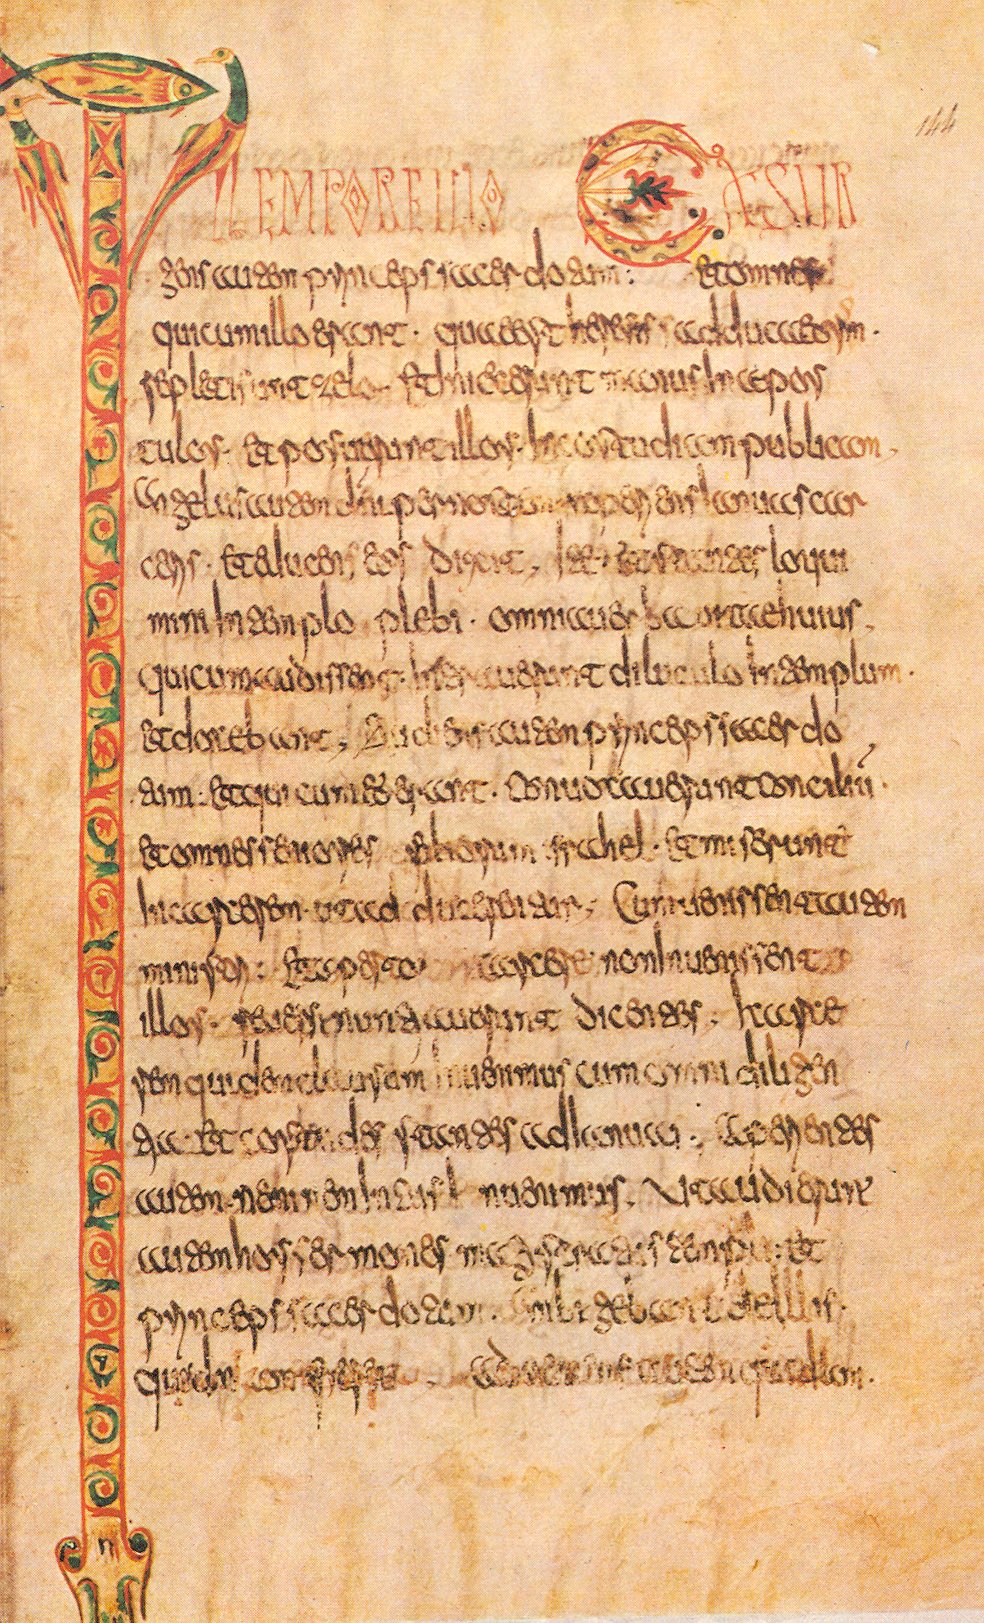 144
TEMPORE ILLO EXSUR
gens autem princeps sacerdotum. et omnes
qui cum illo erant. quae est heresis sadducaeorum.
repleti sunt zelo. Et iniecerunt manus in apos
tolos. et posuerunt illos. in custudiam publicam.
Angelus autem dni per noctem aperiens ianuas car
ceris. et educens eos dixit. Ite. et stantes loqui
mini in templo plebi. omnia uerba uitae huius.
qui cum audissent. intrauerunt diluculo in templum.
et docebant. Audiens autem princeps sacerdo
tum. et qui cum eo erant. Conuocauerunt conciliũ.
et omnes seniores filiorum israhel. Et miserunt
in carcerem. ut adducerentur. Cum uenissent autem
ministri. et aperto carcere non inuenissent
illos. reuersi nuntiauerunt dicentes. Carce
rem quidem clausum inuenimus cum omni diligen
tia. et costudes stantes ad ianuas. Aperientes
autem neminem intus inuenimus. Ut audierunt
autem hos sermones magistratus templi. et
princeps sacerdotum. ambigebant de illis.
quidnam fieret. adueniens autem quidam.